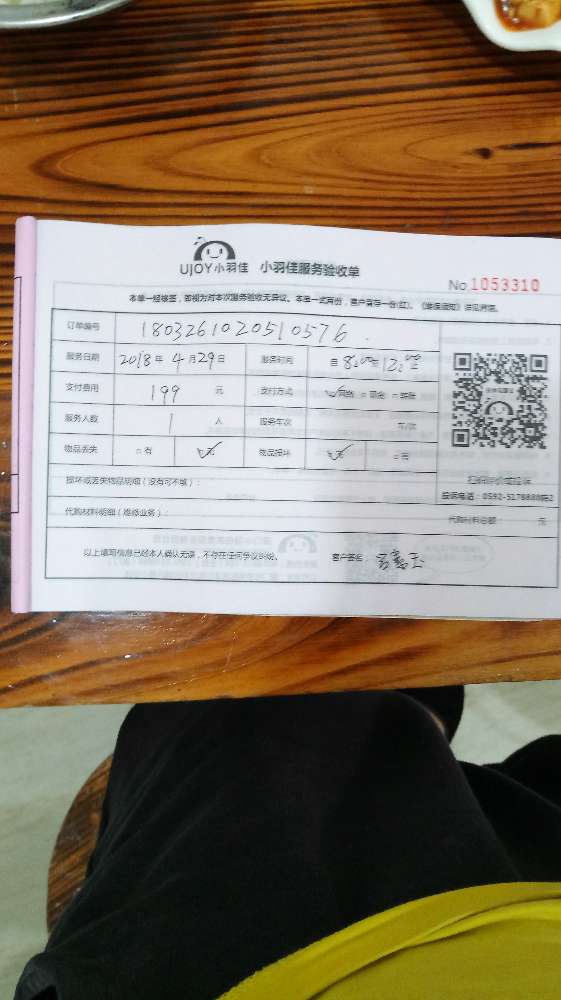 UJOY小羽佳 小羽佳服务验收单
No.1053310
本单一经核签，即视为对本次服务验收无异议。本单一式两份，客户留存一份(红)。《维保须知》详见背面。
订单编号 1803261020510576
服务日期 2018年4月29日 服务时间 自8:00至12:00止
支付费用 199元 支付方式 网络 □现金 □转账
服务人数 1人 服务车次 车/次
物品丢失 □有 无 物品损坏 □无
扫描评价或投诉
损坏或丢失物品明细（没有可不填）：
投诉电话：0592-5178888转2
代购材料明细（维修业务）： 代购材料总额： 元
以上填写信息已经本人确认无误，不存在任何争议纠纷。 客户签名：